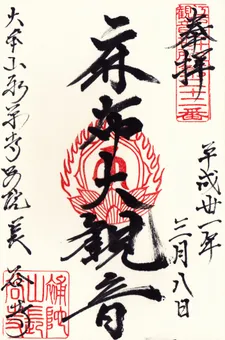 奉拝
平成廿一年
三月八日
麻布大観音
大本山永平寺別院長谷寺